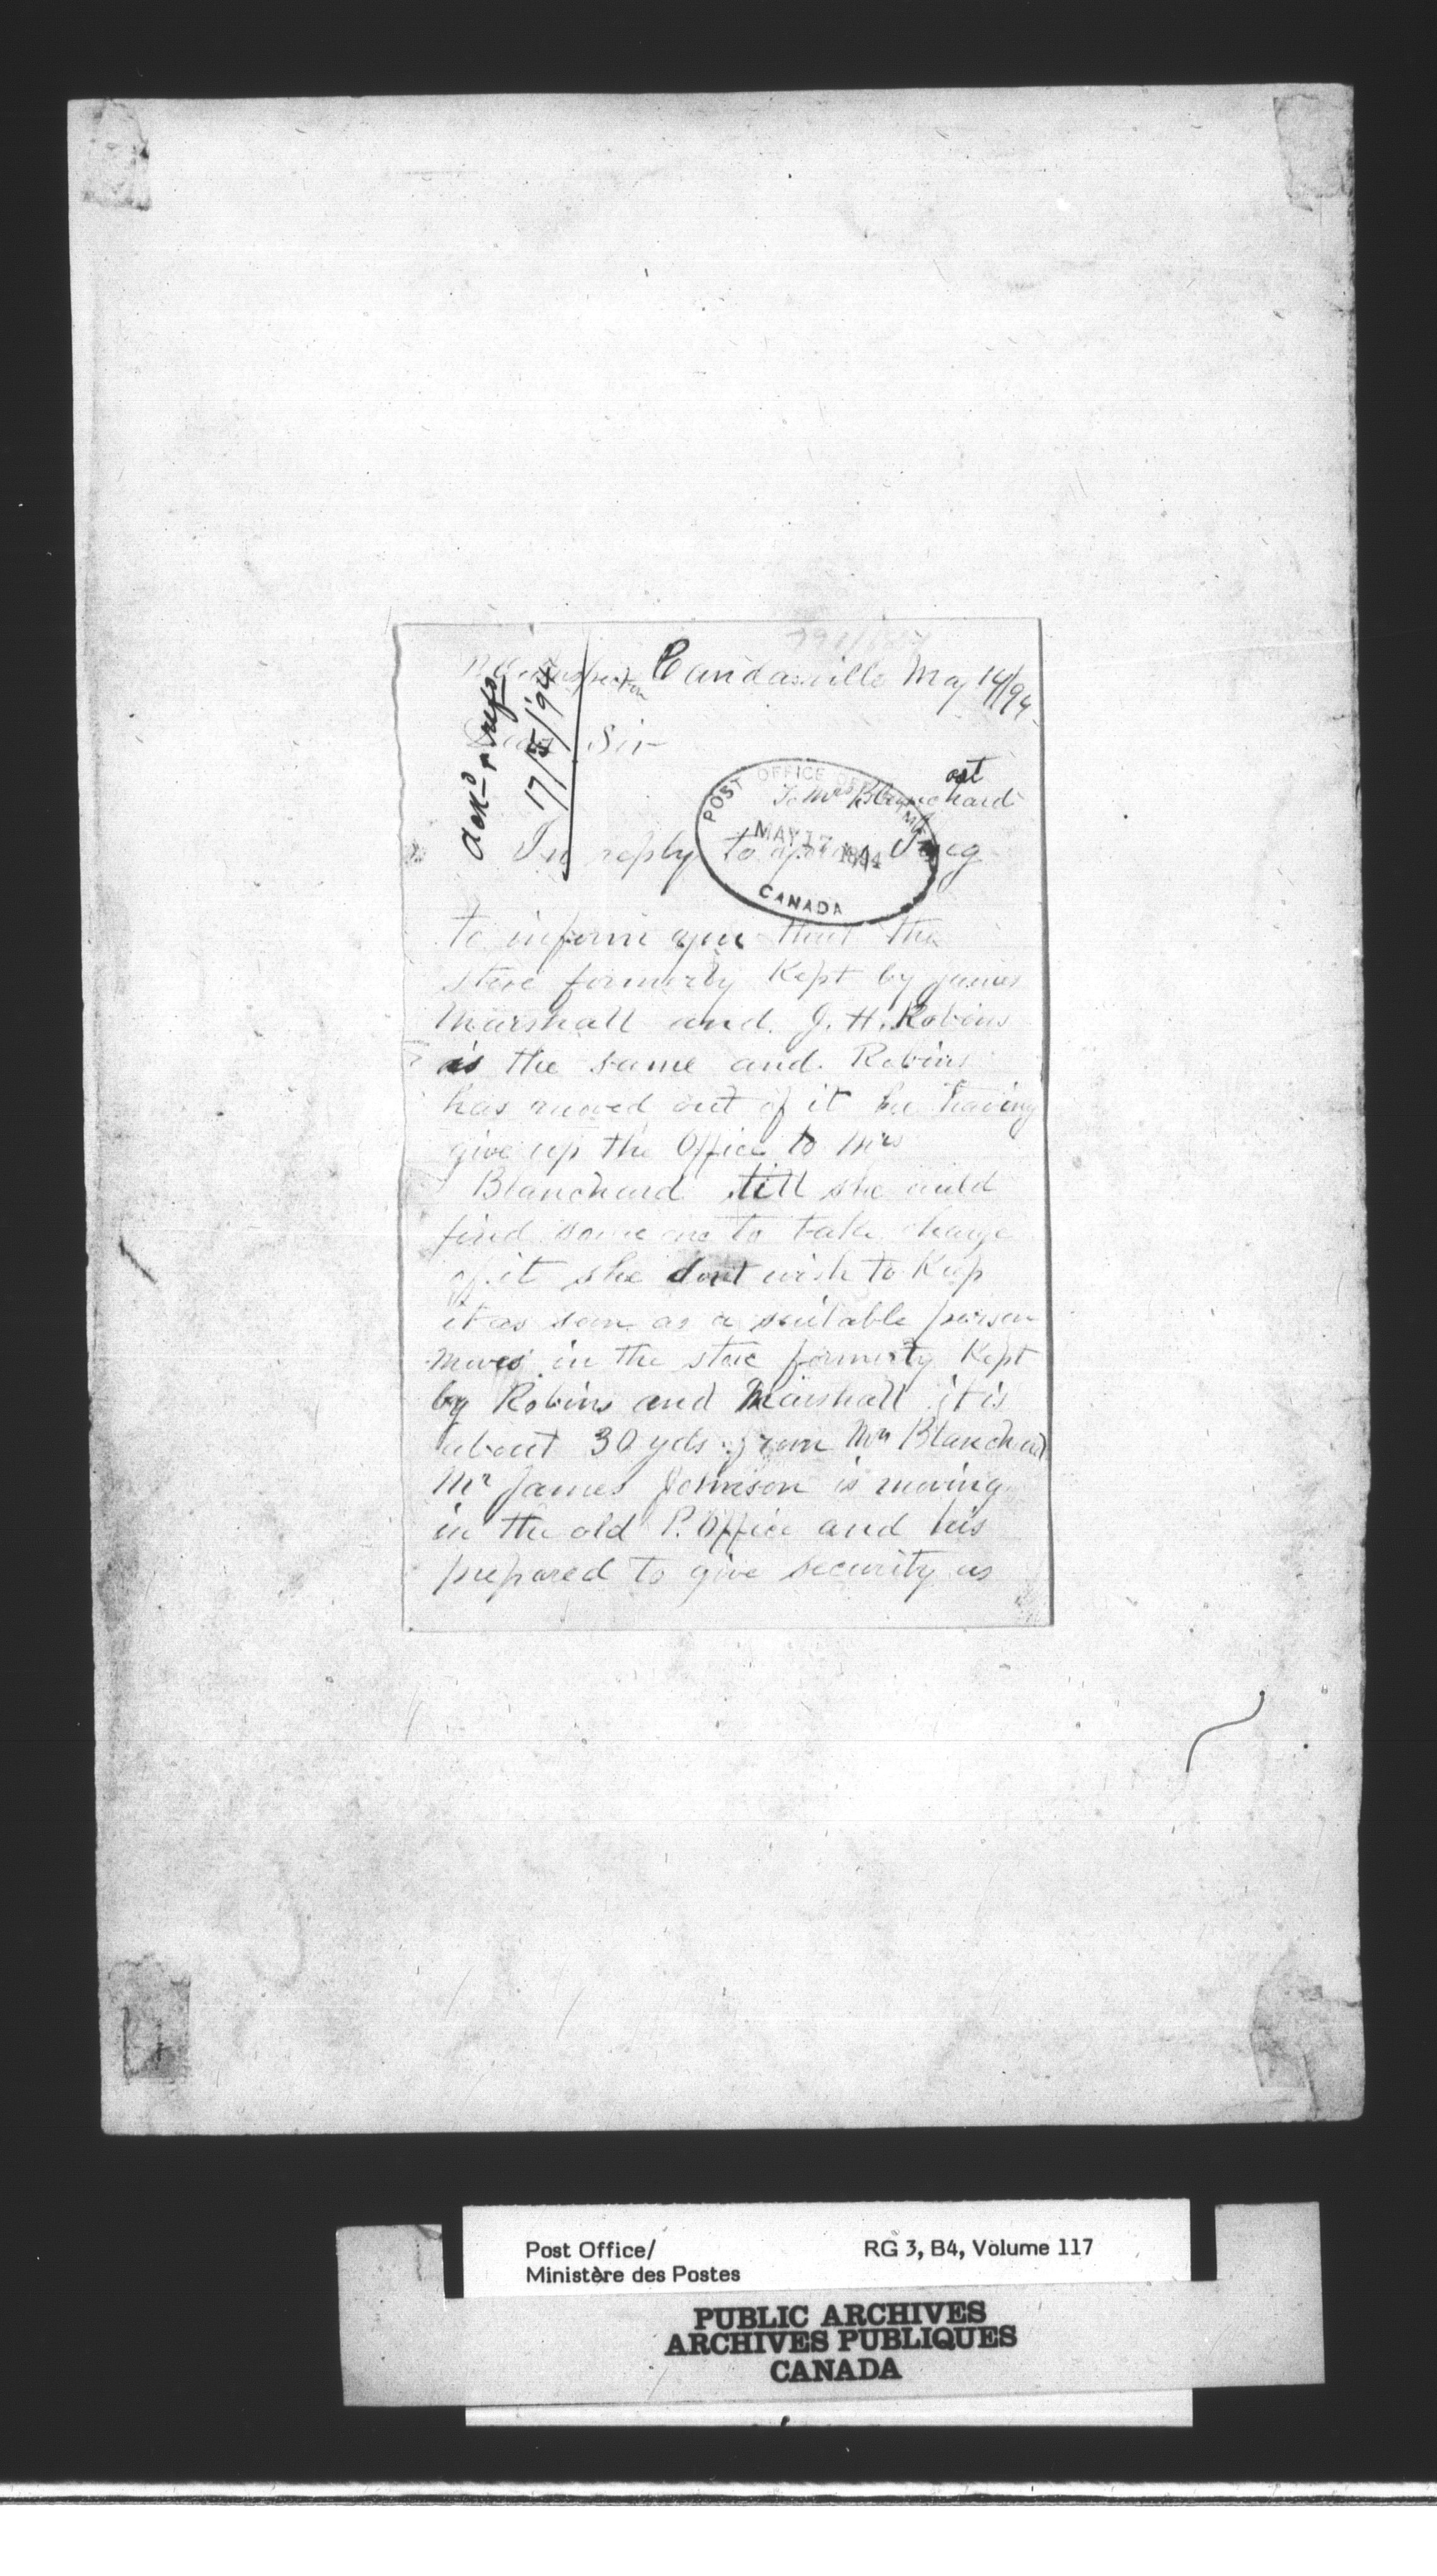 Candasville May 14/94
Dear Sir
Ackd & refd
17/5/94
POST OFFICE DEPARTMENT
MAY 17 1894
CANADA
To Mrs Blanchard
In reply to I beg
to inform you that the
store formerly Kept by James
Marshall and J. H. Robins
is the same and Robins
has moved out of it he having
give up the Office to Mrs
Blanchard till she could
find some one to take charge
of it she dont wish to Keep
it as soon as a suitable person
moves in the store formerly Kept
by Robins and Marshall it is
about 30 yds from Mrs Blanchard
Mr James Johnson is moving
in the old P. Office and his
prepared to give security as
Post Office/
Ministère des Postes
RG 3, B4, Volume 117
PUBLIC ARCHIVES
ARCHIVES PUBLIQUES
CANADA